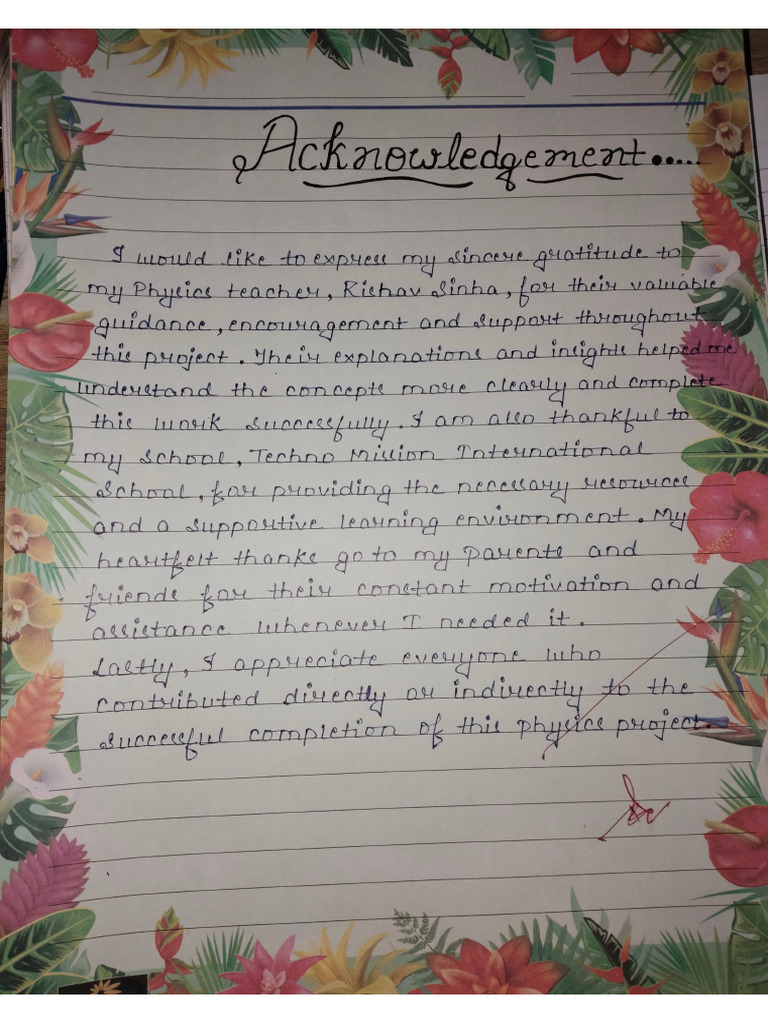 Acknowledgement.....
I would like to express my sincere gratitude to
my Physics teacher, Rishav Sinha, for their valuable
guidance, encouragement and support throughout
this project. Their explanations and insights helped me
understand the concepts more clearly and complete
this work successfully. I am also thankful to
my School, Techno Mission International
School, for providing the necessary resources
and a supportive learning environment. My
heartfelt thanks go to my parents and
friends for their constant motivation and
assistance whenever I needed it.
Lastly, I appreciate everyone who
contributed directly or indirectly to the
successful completion of this physics project.